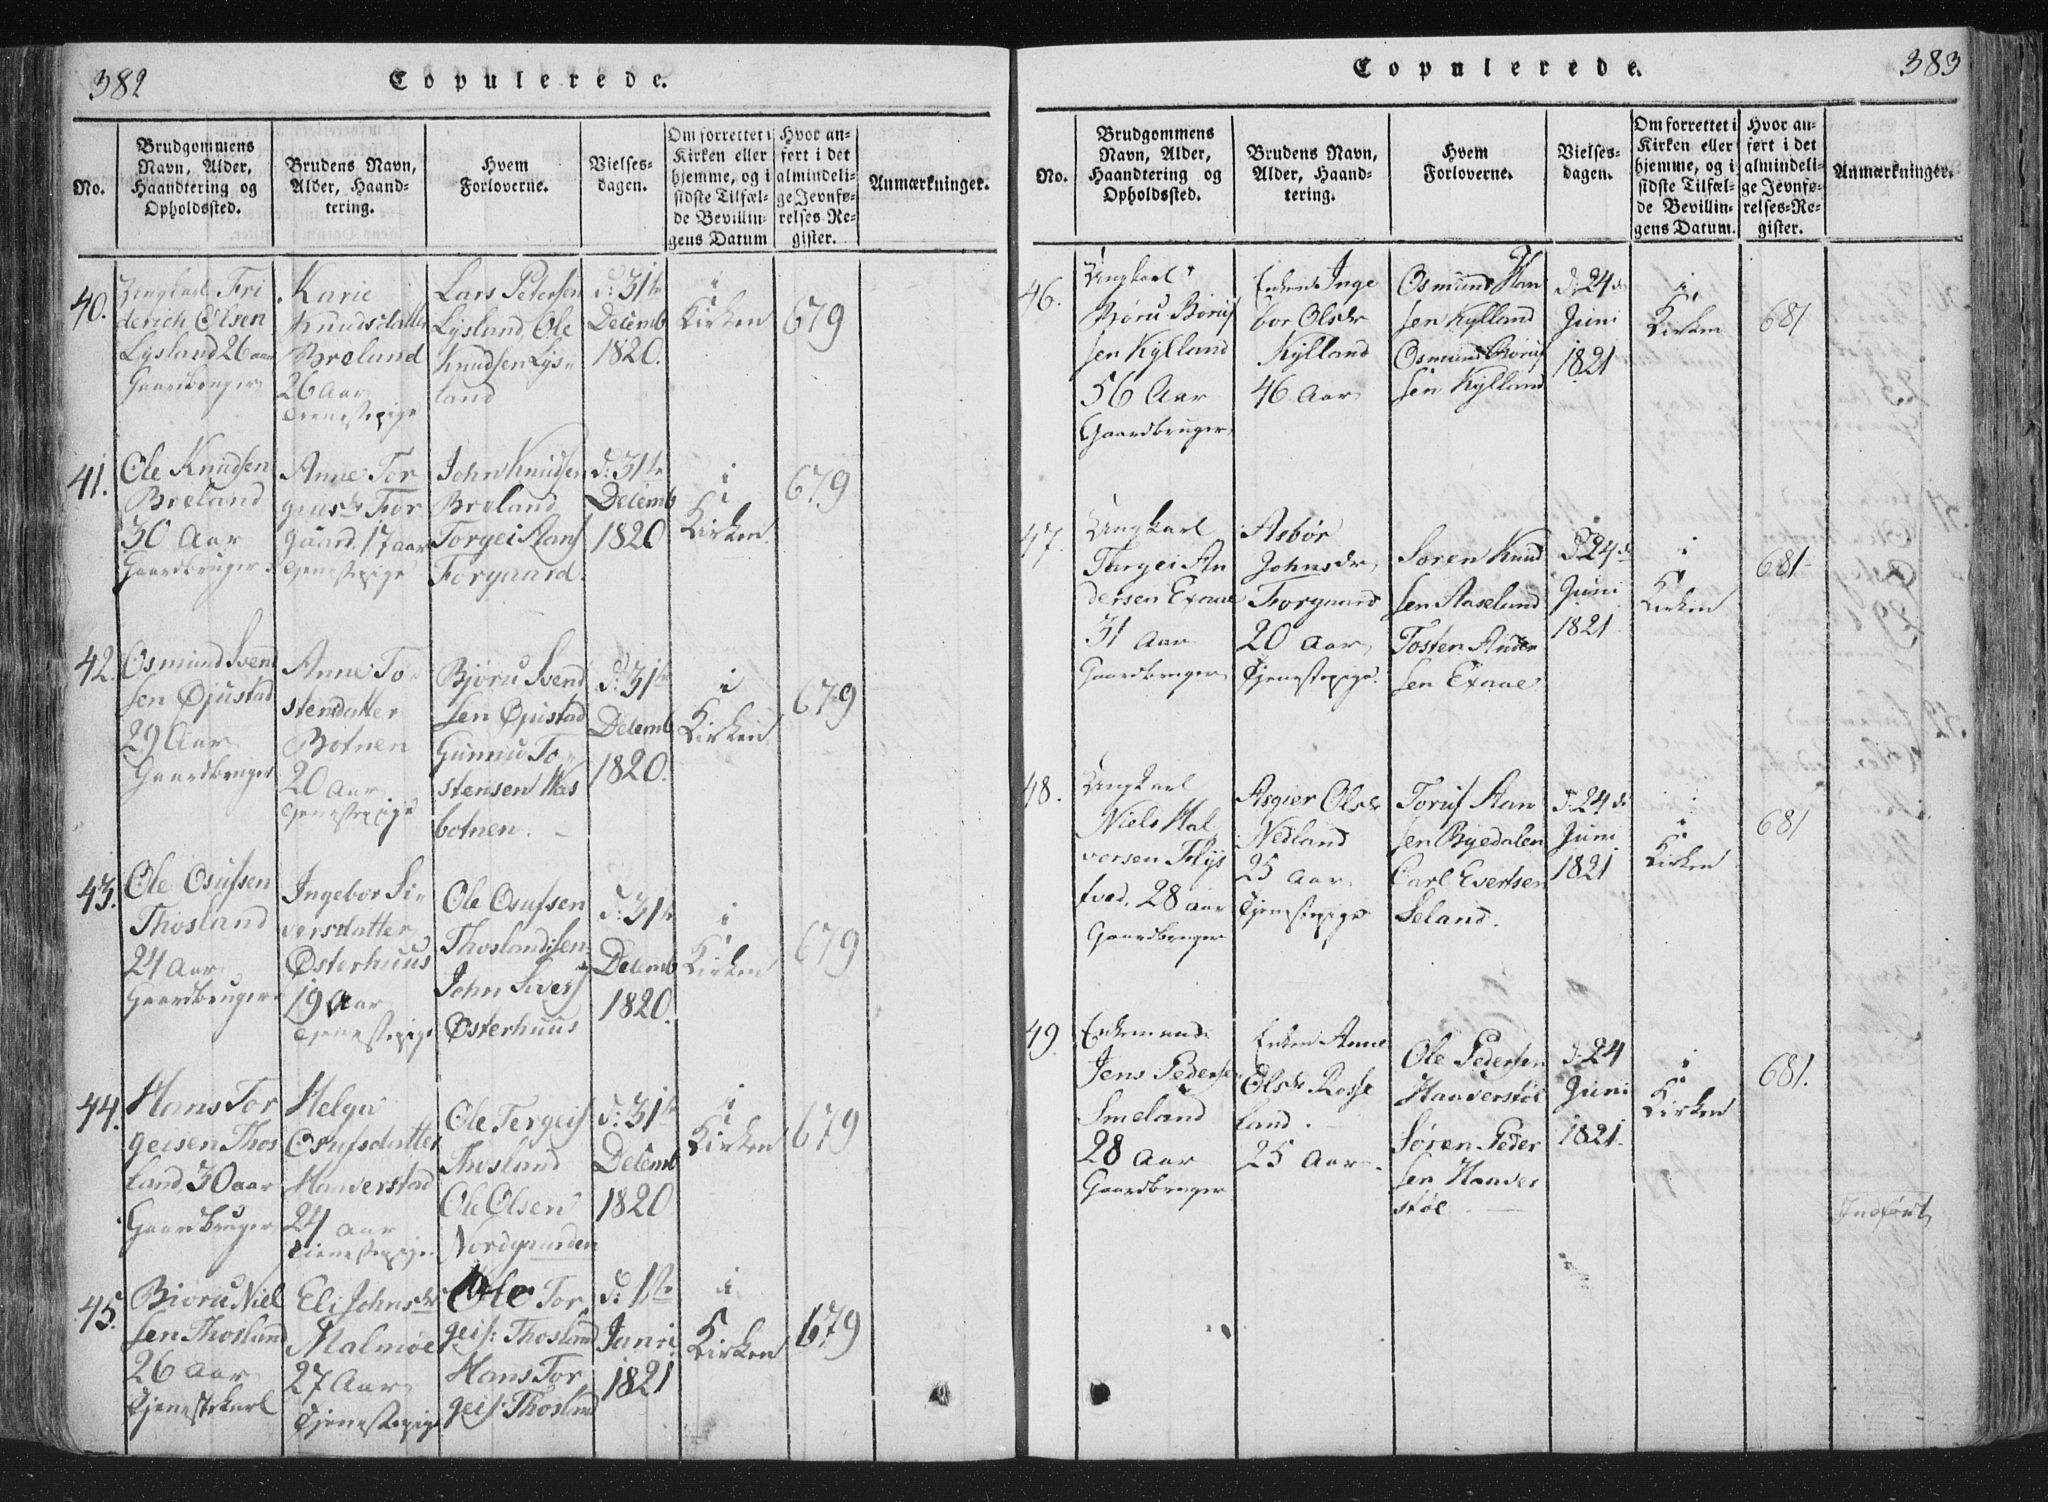 382
Copulerede.
No.
Brudgommens Navn, Alder, Haandtering og Opholdssted.
Brudens Navn, Alder, Haandtering.
Hvem Forloverne.
Vielses-dagen.
Om forrettet i Kirken eller hjemme, og i sidste Tilfælde Bevillingens Datum
Hvor anført i det almindelige Jevnførelses-Register.
Anmærkninger.
40.
Ungkarl Fri
derich Olsen
Lysland 26 aar
Gaardbruger
Karie
Knudsdatter
Breland
26 Aar
Tjenestepige
Lars Petersen
Lysland, Ole
Knudsen Lys-
land
d: 31te
Decemb
1820.
i
Kirken
679
41.
Ole Knudsen
Breland
30 Aar
Gaardbruger
Anne Tor
geisdr Tor
gaard. 17 aar
Tjenestepige
John Knudsen
Breland
Torgei Hans
Torgaard.
d: 31te
Decemb
1820
i
Kirken
679
42.
Osmund Svend
sen Øjustad
29 Aar
Gaardbruger
Anne To-
stensdatter
Botnen
20 aar
Tjenestepige
Bjoru Svend
sen Øjustad
Gunnu To-
stensen Aas
botnen.
d: 31te
Decemb
1820.
i
Kirken
679
43.
Ole Osufsen
Thosland
24 Aar
Gaardbruger
Ingebor Si-
versdatter
Østerhuus
19 Aar
Tjenestepige
Ole Osufsen
Thoslandsen
John Sivers
Østerhuus
d: 31te
Decemb
1820.
i
Kirken
679
44.
Hans Tor
geisen Thos
land, 30 aar
Gaardbruger
Helga
Osufsdatter
Haaverstad
24 aar
Tjenestepige
Ole Tergeis
Thosland
Ole Olsen
Nordgaarden
d: 31te
Decemb
1820
i
Kirken
679
45.
Bioru Niel
sen Thosland
26 Aar
Tjenestekarl
Eli Johnsdr
Malmøe
27 Aar
Tjenestepige
Ole Tor
geis: Thosland
Hans Tor
geis: Thosland
d: 1ste
Janri
1821
i
Kirken
679
383
Copulerede.
No.
Brudgommens Navn, Alder, Haandtering og Opholdssted.
Brudens Navn, Alder, Haandtering.
Hvem Forloverne.
Vielses-dagen.
Om forrettet i Kirken eller hjemme, og i sidste Tilfælde Bevillingens Datum.
Hvor anført i det almindelige Jevnførelses-Register.
Anmærkninger.
46.
Ungkarl
Børu Børuf
sen Kylland
56 Aar
Gaardbruger
Enken Inge
bor Olsdr
Kylland
46 Aar
Osmund Han
sen Kylland
Osmund Børuf
sen Kylland
d: 24de
Juni
1821
i
Kirken
681
47.
Ungkarl
Targei An
dersen Exaae
31 Aar
Gaardbruger
Asbør
Johnsdr
Torgaard
20 Aar
Tjenestepige.
Soren Knud
sen Aaseland
Tosten Ander
sen Exaae
d: 24de
Juni
1821
i
Kirken
681
48.
Ungkarl
Niels Hal
vorsen Flys
tved. 28 aar
Gaardbruger
Asgier Olsdr
Nedland
25 aar
Tjenestepige
Toruf Han
sen Byedalen
Carl Evertsen
Seland.
d: 24de
Juni
1821
i
Kirken
681
49.
Enkemand
Jens Pedersen
Smeland
28 Aar
Gaardbruger
Enken Anne
Olsdr Rosse
land.
25 Aar.
Ole Pedersen
Haaverstøe
Søren Peder
sen Haaver
støe
d: 24
Juni
1821
i
Kirken
681.
Indført